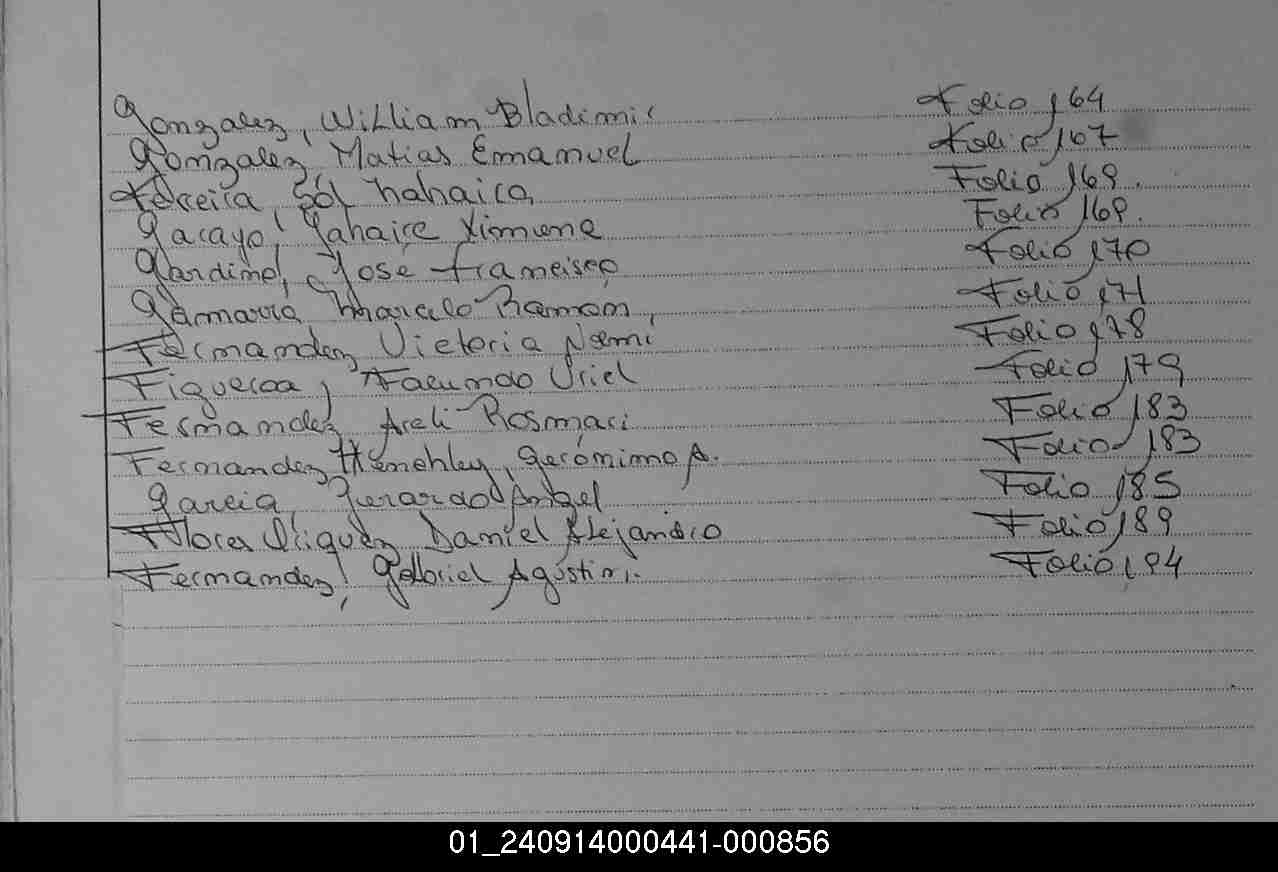 Gonzalez, William Bladimir Folio 164
Gonzalez Matias Emanuel Folio 167
Ferreira Sol Nahaira Folio 169.
Garayo, Yahaire Ximena Folio 169.
Jardimel, Jose Francisco Folio 170
Gamarra Marcelo Ramon, Folio 171
Fernandez Victoria Noemi Folio 178
Figueroa, Facundo Uriel Folio 179
Fernandez Areli Rosmari Folio 183
Fernandez Henchley, Gerónimo A. Folio 183
Garcia, Gerardo Angel Folio 185
Flores Daniel Alejandro Folio 189
Fernandez, Gabriel Agustin. Folio 194
01_240914000441-000856